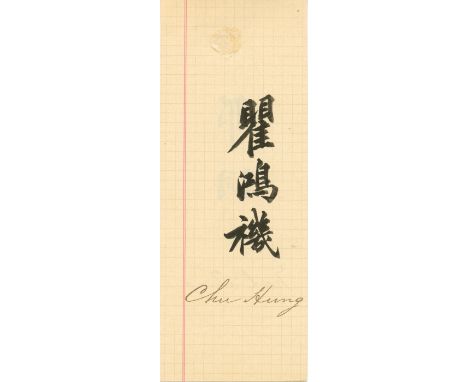 瞿鴻禨
Chu Hung